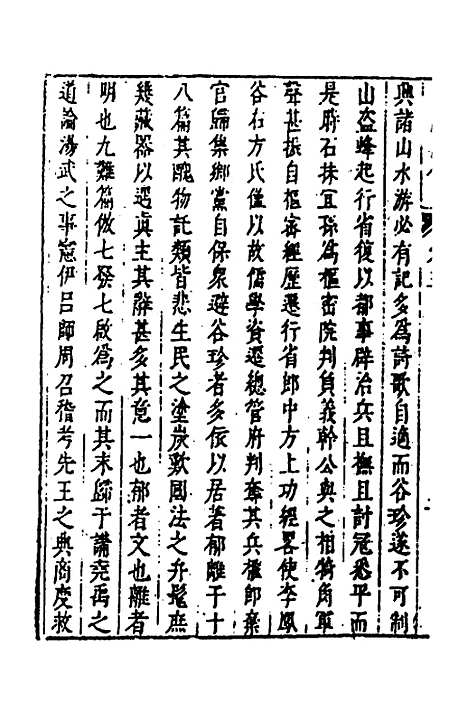 興諸山水游必有記多爲詩歌自適而谷珍遂不可制
山盗蜂起行省復以都事辟治兵且撫且討冦悉平而
是時石抹宜孫爲樞密院判負義幹公與之相犄角軍
聲甚振自樞密經歷遷行省郎中方上功經畧使李鳳
谷右方氏僅以故儒學資遷總管府判奪其兵權郎棄
官歸集鄉黨自保衆避谷珍者多依以居著郁離子十
八篇其託物託類皆悲生民之塗炭歎國法之弁髦庶
幾藏器以遇眞主其辭甚多其意一也郁者文也離者
明也九難篇倣七發七啟爲之而其末歸于講堯禹之
道論湯武之事憲伊呂師周召稽考先王之典商度救